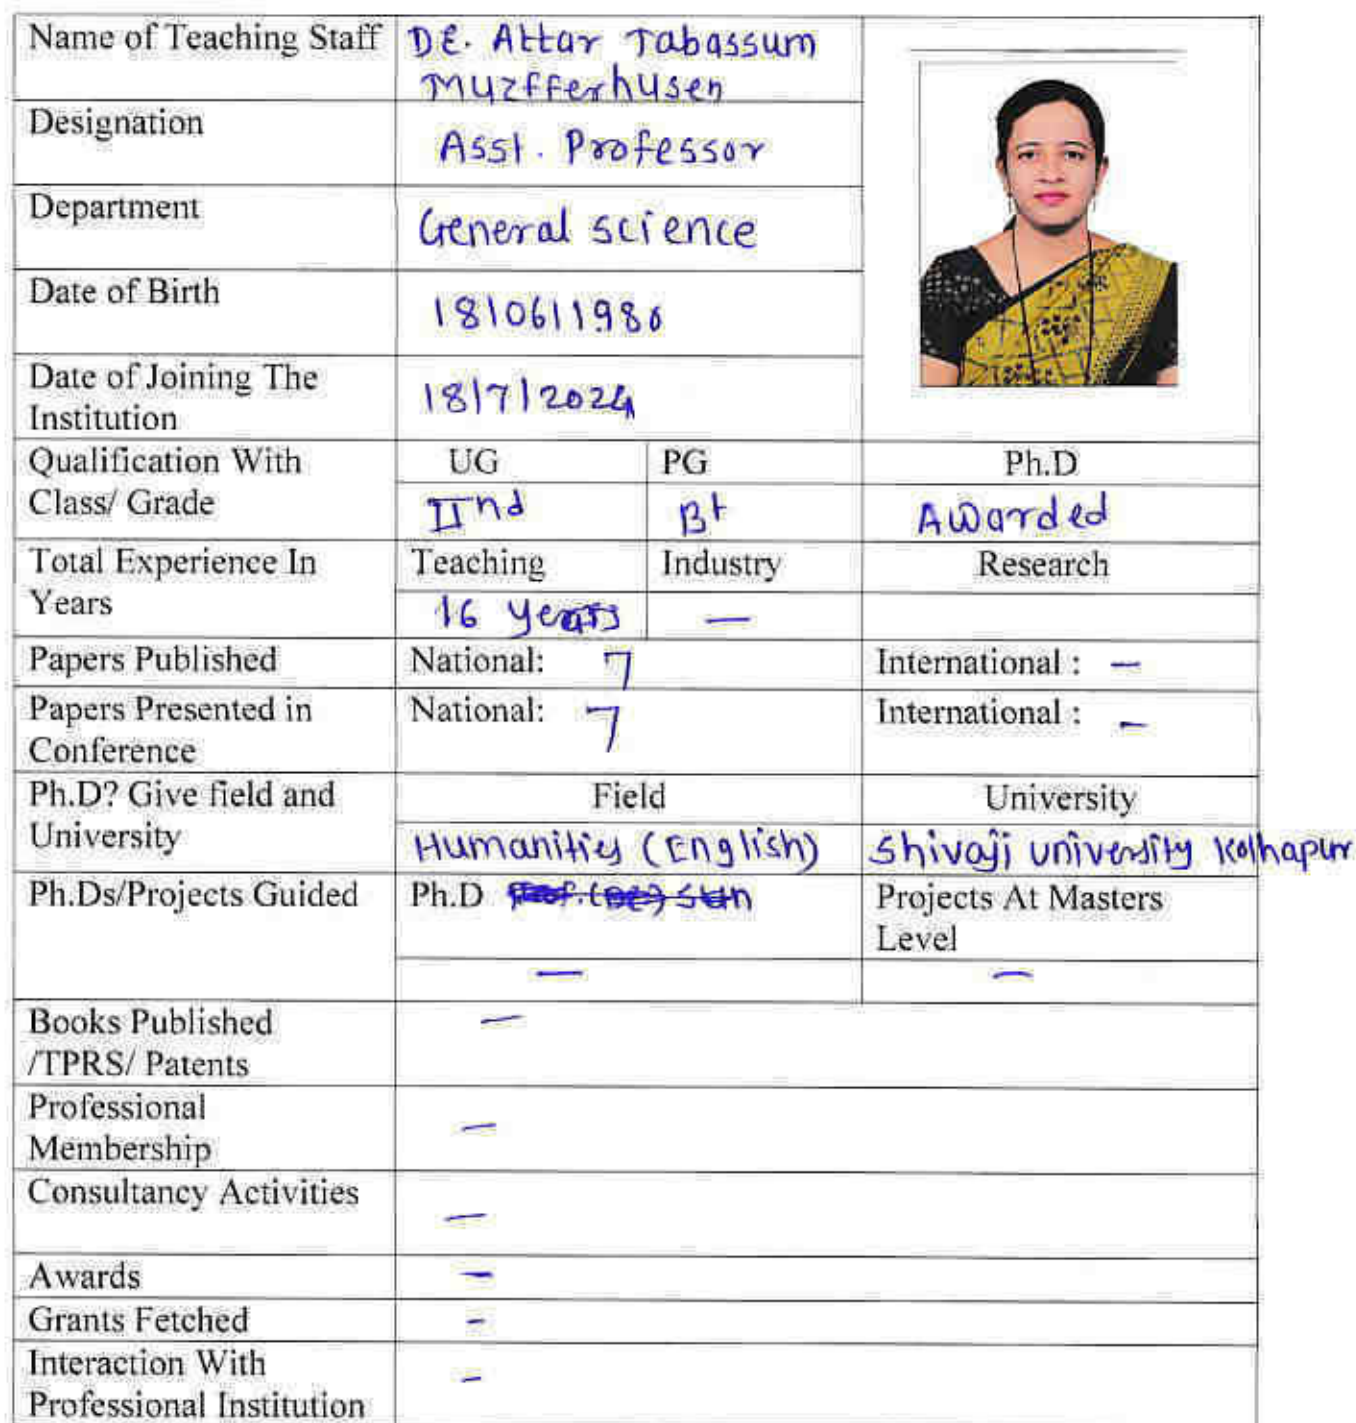 Name of Teaching Staff DR. Attar Tabassum
Muzfferhusen
Designation Asst. Professor
Department General science
Date of Birth 18/06/1980
Date of Joining The
Institution 18/7/2024
Qualification With UG PG Ph.D
Class/ Grade IInd B+ Awarded
Total Experience In Teaching Industry Research
Years 16 Years —
Papers Published National: 7 International : —
Papers Presented in National: 7 International : —
Conference
Ph.D? Give field and Field University
University Humanities (English) Shivaji university Kolhapur
Ph.Ds/Projects Guided Ph.D Projects At Masters
Level
— —
Books Published —
/TPRS/ Patents
Professional
Membership —
Consultancy Activities —
Awards —
Grants Fetched -
Interaction With -
Professional Institution